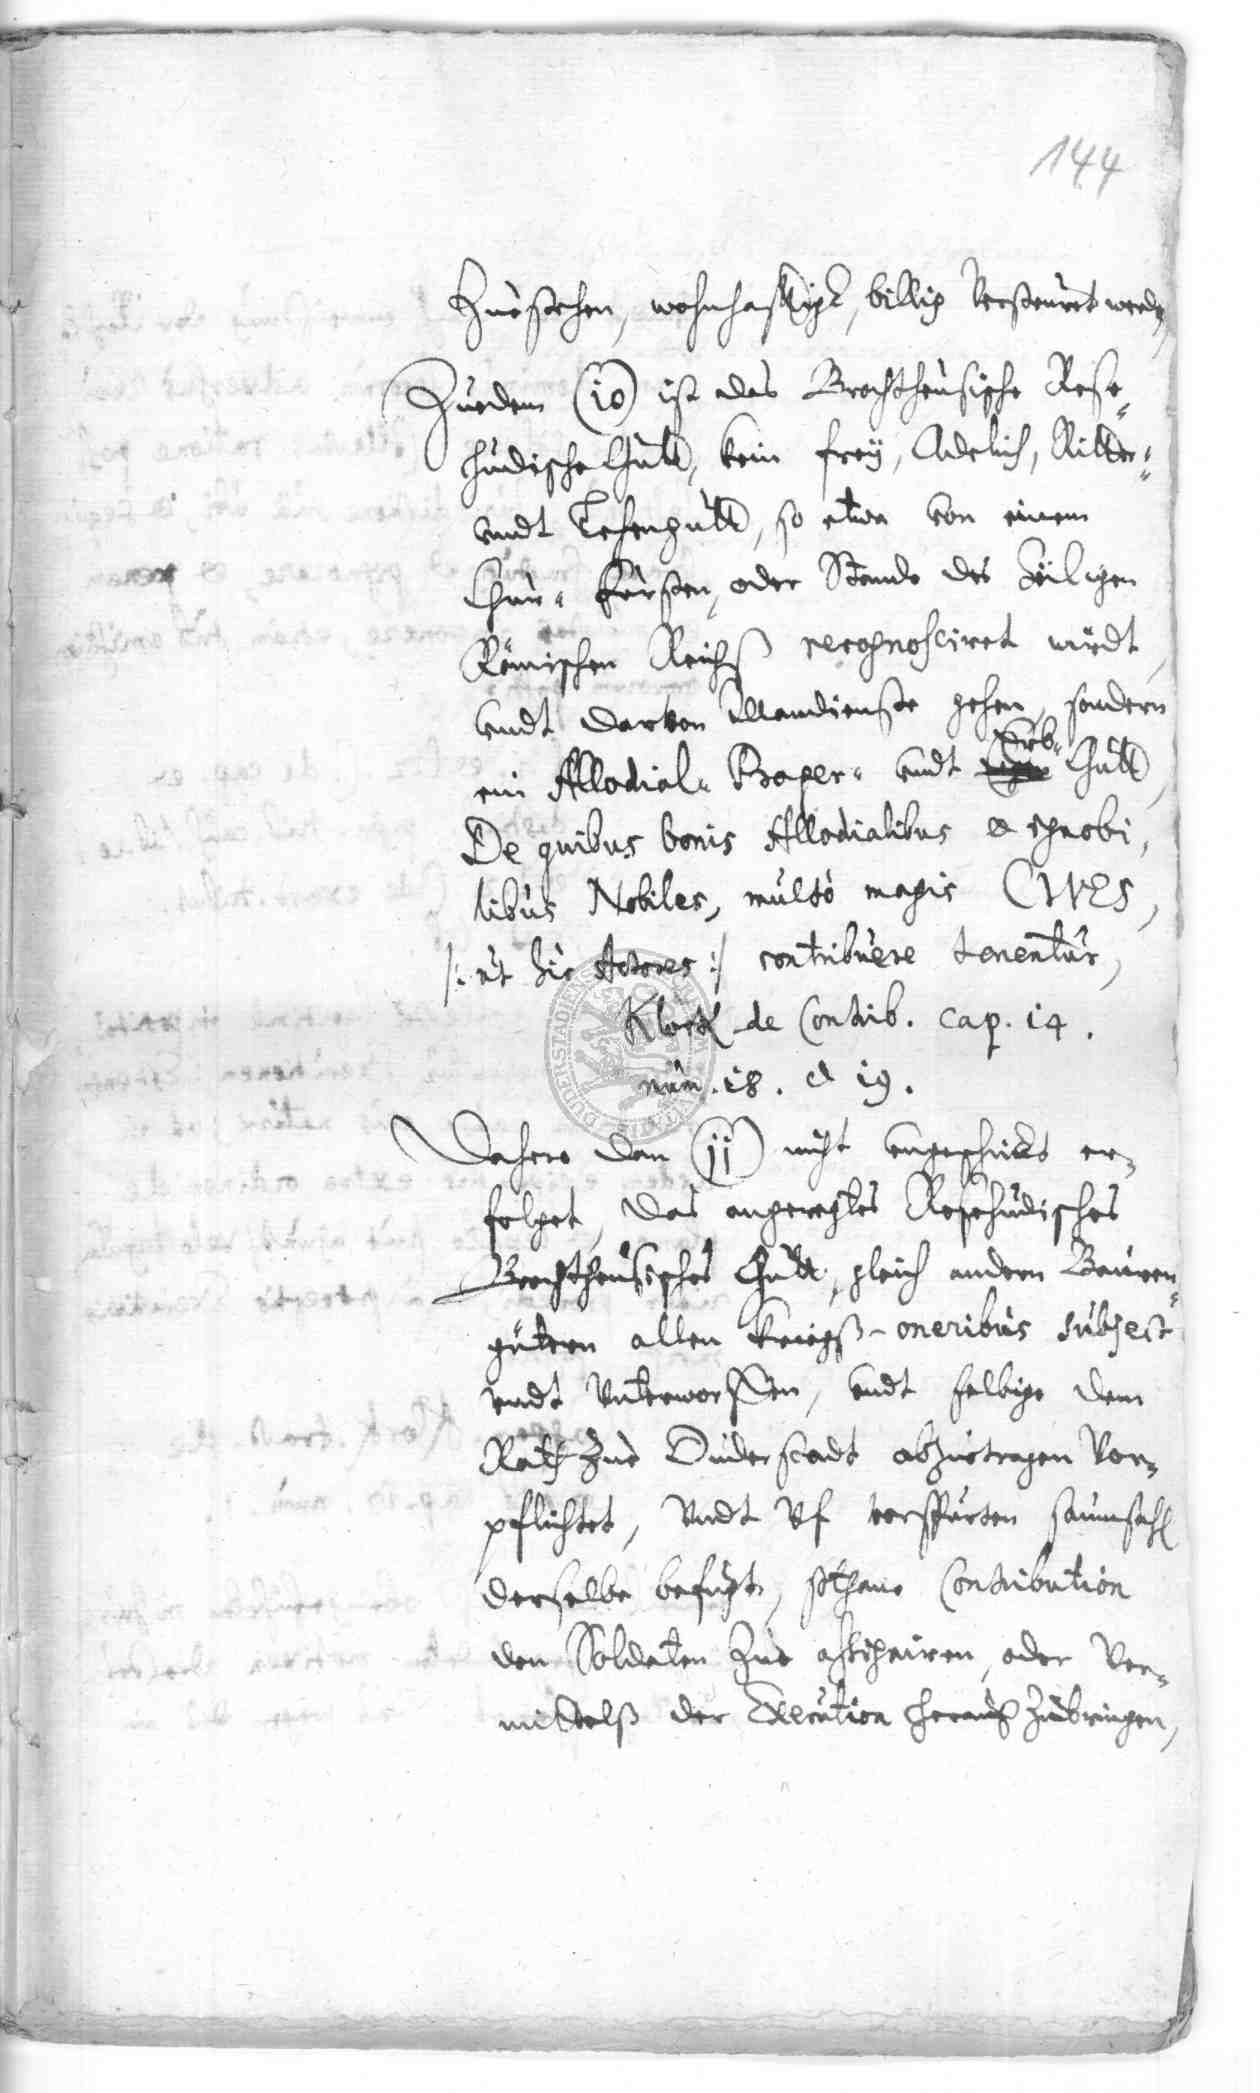 144
Zueschen, wohnhafftigt, billig versteuret werden,
Zuedem (10) ist das Brochtheusische Rese-
hudische Gutt, kein frey, Adelich, Ritter-
undt Lehengutt, so etwa von einem
Chur- Fürsten, oder Stande des Heiligen
Römischen Reichß recognosciret würdt,
undt darvon Mandienste gehen, sondern
ein Allodial- Proper- undt Erb- Gutt,
De quibus bonis Allodialibus et ignobi,
libus Nobiles, multò magis CIVES,
/: ut hic Actores :/ contribuere tenentur,
Klock de Contrib. cap. 14.
num. 18. et 19.
Dahero dan (11) nicht ungeschickt er-
folget, das angeregtes Resehudisches
Brochtheusisches Gutt, gleich andern Bauren-
gütern allen kriegß-oneribus subject
undt Unterworffen, undt selbige dem
Rath Zue Duderstadt abzustragen Ver-
pflichtet, Undt Vf verspürten saumsahl
derselbe befugt, sothane Contribution
den Soldaten Zue assigniren, oder Ver-
mittelß der Execution herauß Zubringen,
DUDERSTADIENS